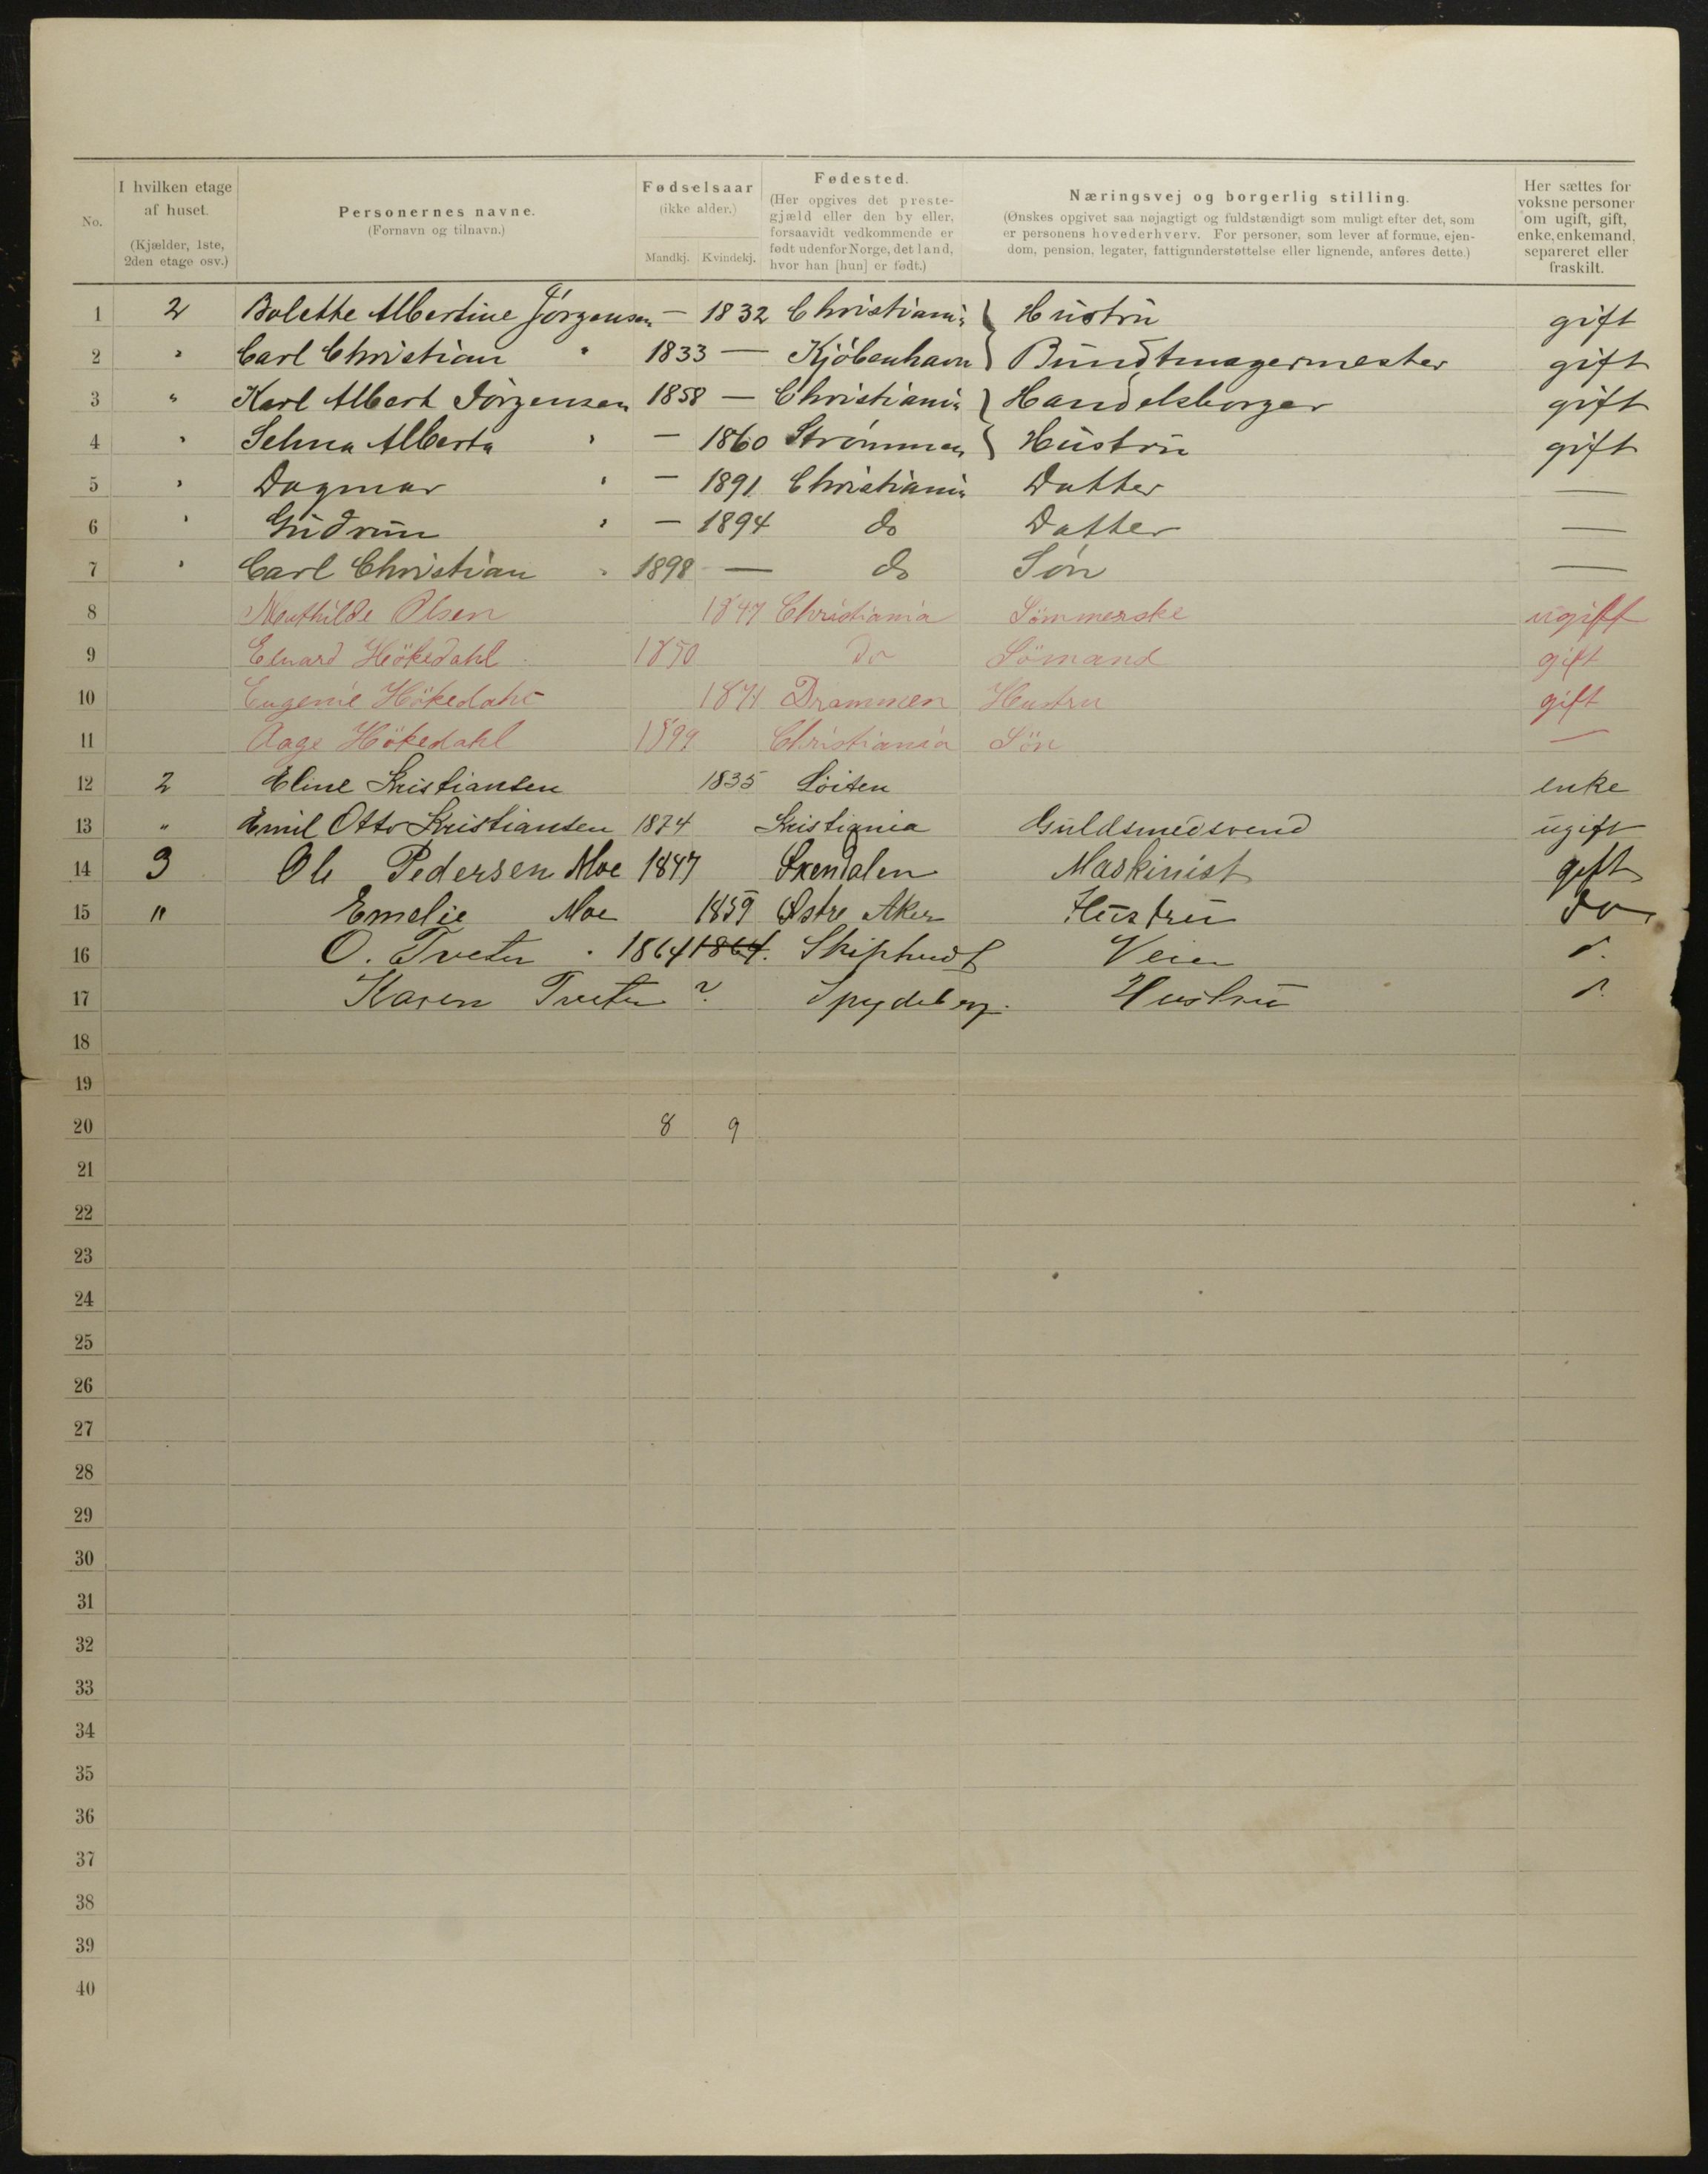 No.
I hvilken etage af huset. (Kjælder, 1ste, 2den etage osv.)
Personernes navne. (Fornavn og tilnavn.)
Fødselsaar (ikke alder.) Mandkj. Kvindekj.
Fødested. (Her opgives det prestegjæld eller den by eller, forsaavidt vedkommende er født udenfor Norge, det land, hvor han [hun] er født.)
Næringsvej og borgerlig stilling. (Ønskes opgivet saa nøjagtigt og fuldstændigt som muligt efter det, som er personens hovederhverv. For personer, som lever af formue, ejendom, pension, legater, fattigunderstøttelse eller lignende, anføres dette.)
Her sættes for voksne personer om ugift, gift, enke, enkemand, separeret eller fraskilt.
1 2 Bolette Albertine Jörgensen — 1832 Christiania Hustru gift
2 " Carl Christian " 1833 — Kjöbenhavn Bundtmagermester gift
3 " Karl Albert Jörgensen 1858 — Christiania Handelsborger gift
4 " Selma Alberta " — 1860 Strömmen Hustru gift
5 " Dagmar " — 1891 Christiania Datter —
6 " Gudrun " — 1894 do Datter —
7 " Carl Christian " 1898 — do Sön —
8 Mathilde Olsen 1847 Christiania Sömmerske ugift
9 Edvard Hökedahl 1850 do Sömand gift
10 Eugenie Hökedahl 1871 Drammen Hustru gift
11 Aage Hökedahl 1899 Christiania Sön —
12 2 Eline Kristiansen 1835 Löiten enke
13 " Emil Otto Kristiansen 1874 Kristiania Guldsmedsvend ugift
14 3 Ole Pedersen Moe 1847 Maskinist gift
15 " Emelie Moe 1859 Østre Aker Hustru do
16 O. Tveter 1864 1864. Skiptvedt Veier d.
17 Karen Tveter ? Spydeberg. Hustru d.
18
19
20 8 9
21
22
23
24
25
26
27
28
29
30
31
32
33
34
35
36
37
38
39
40